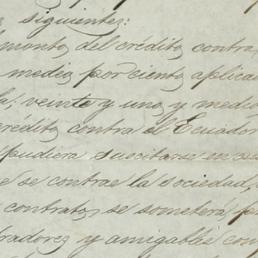 s siguientes:
monto del crédito contra
medio por ciento aplica
la, veinte y uno y medio
crédito contra el Ecuador
pudiera suscitarse en
e se contrae la sociedad,
contratos se someterá
radores y amigables com